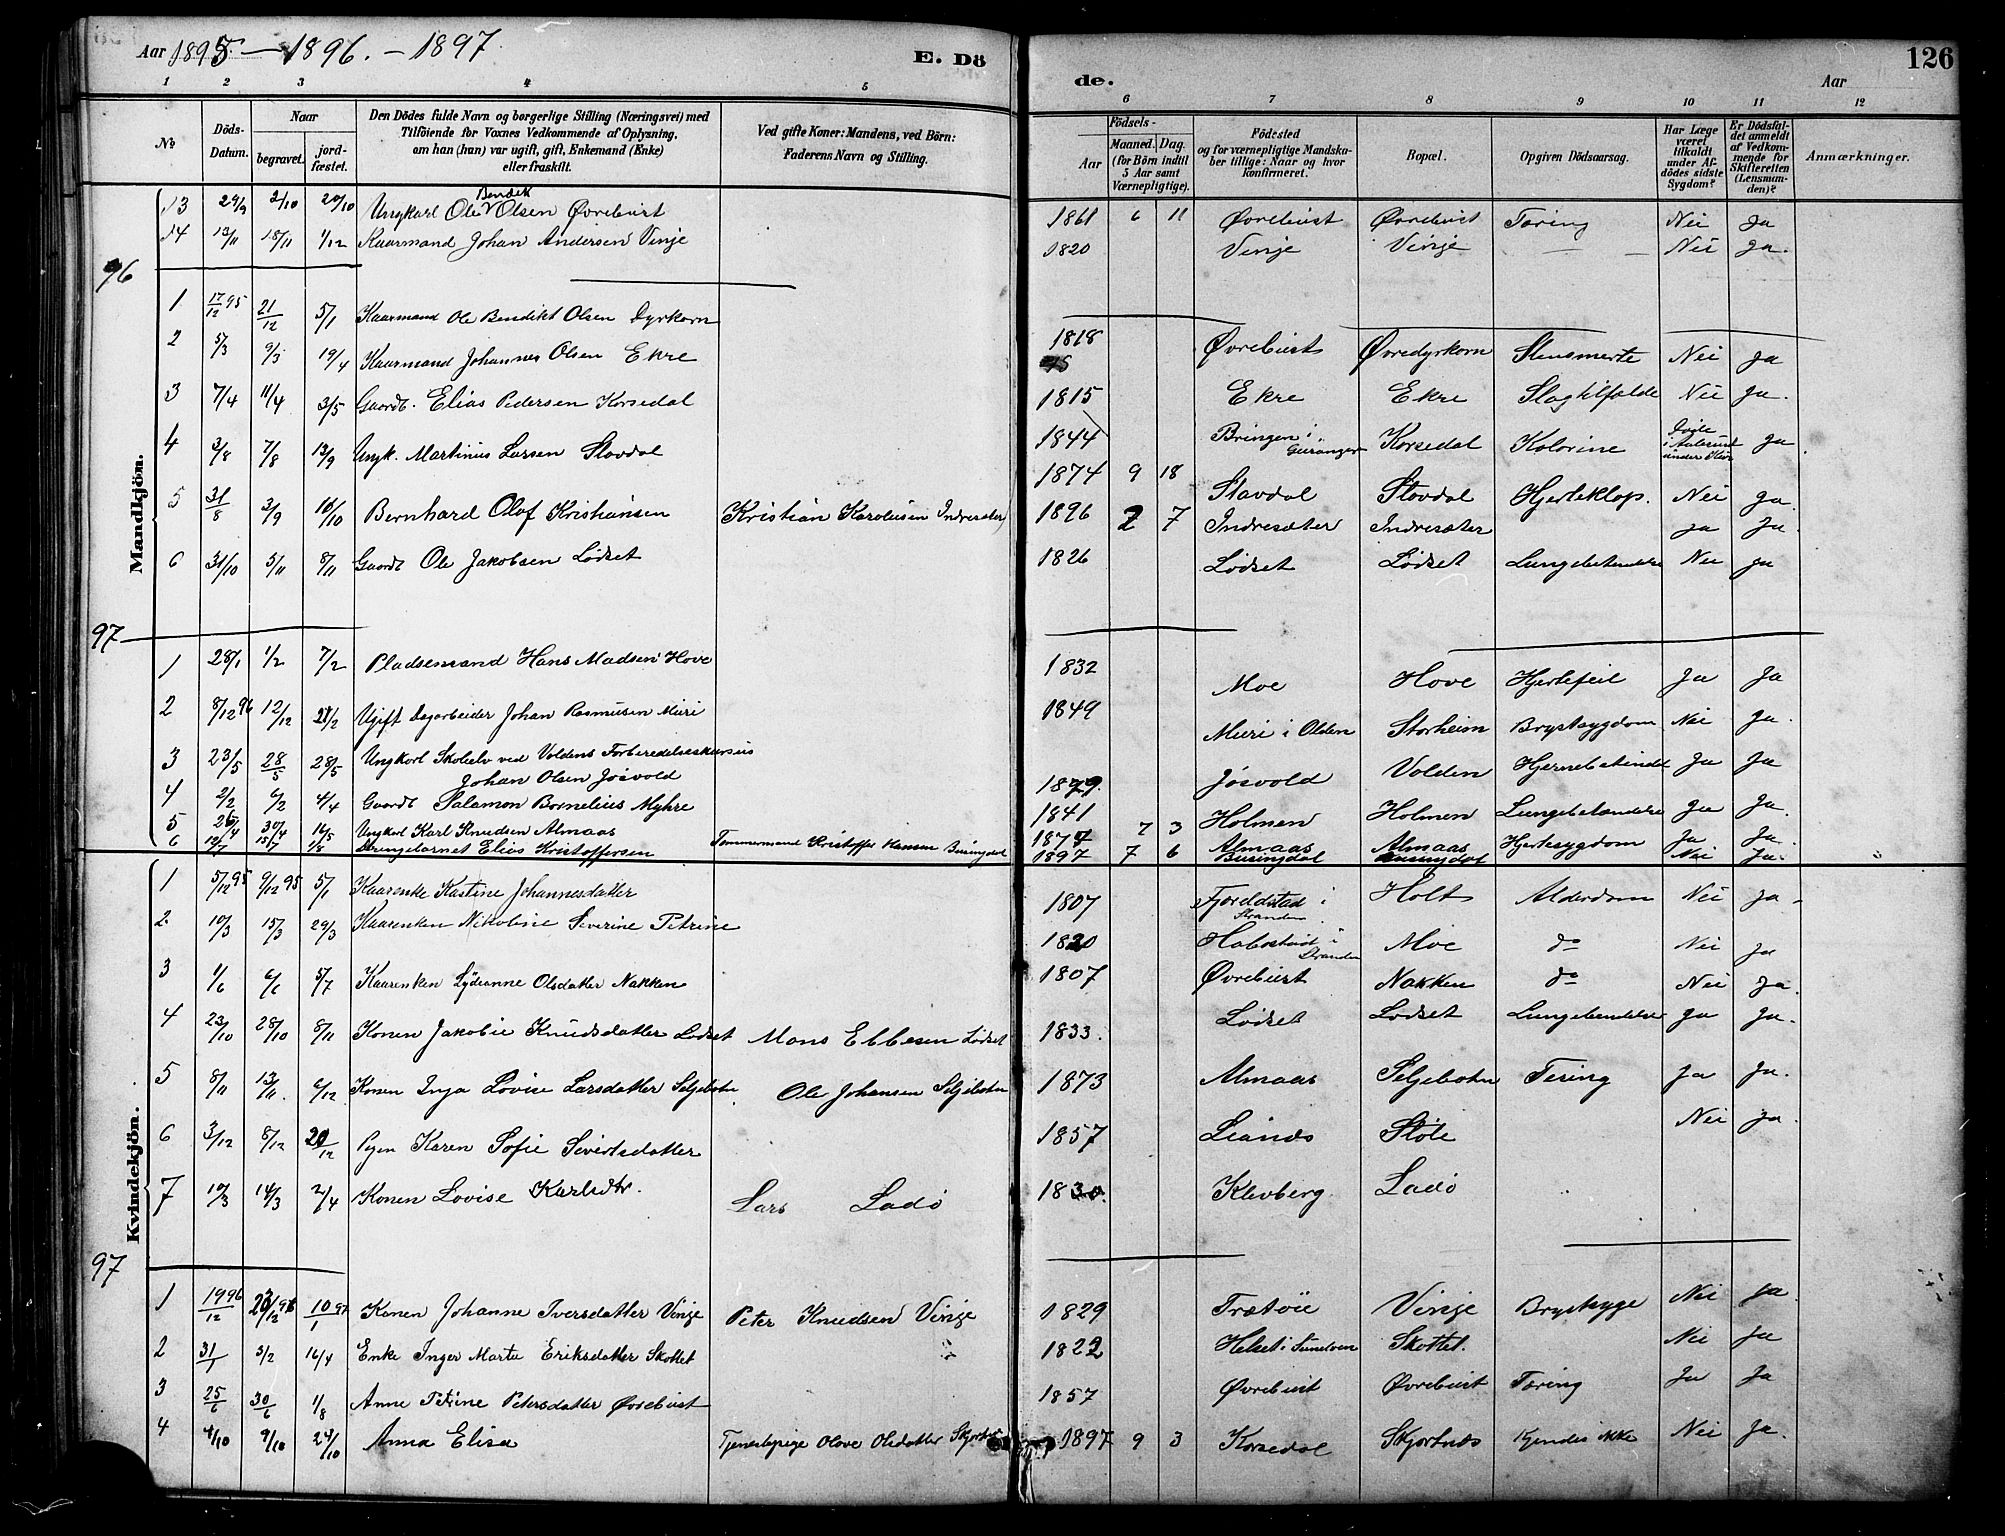 Aar 1895 — 1896. — 1897
E. Dö
de.
Aar
126
1 2 3 4 5 6 7 8 9 10 11 12
No
Döds-Datum.
Naar
begravet.
jord-fæstet.
Den Dödes fulde Navn og borgerlige Stilling (Næringsvei) med
Tilföiende for Voxnes Vedkommende af Oplysning,
om han (hun) var ugift, gift, Enkemand (Enke)
eller fraskilt.
Ved gifte Koner: Mandens, ved Börn:
Faderens Navn og Stilling.
Födsels-
Aar
Maaned. Dag.
(for Börn indtil
5 Aar samt
Værnepligtige).
Födested
og for værnepligtige Mandska-
ber tillige: Naar og hvor
konfirmeret.
Bopæl.
Opgiven Dödsaarsag.
Har Læge
været
tilkaldt
under Af-
dödes sidste
Sygdom?
Er Dödsfal-
det anmeldt
af Vedkom-
mende for
Skifteretten
(Lensman-
den)?
Anmærkninger.
Mandkjön.
13 29/9 2/10 20/10 Ungkarl Ole Bendik Olsen Øvrebust 1861 6 11 Øvrebust Øvrebust Tæring Nei Ja
14 13/11 18/11 1/12 Kaarmand Johan Andersen Vinje 1820 Vinje Vinje — — Nei Ja.
96
1 17/12 95 21/12 5/1 Kaarmand Ole Bendikt Olsen Dyrkorn 1818 Øvrebust Øvredyrkorn Stensmerte Nei Ja
2 5/3 9/3 19/4 Kaarmand Johannes Olsen Ekre 1815 Ekre Ekre Slagtilfælde Nei Ja.
3 7/4 11/4 3/5 Gaardb. Elias Pedersen Korsedal 1844 Bringen i Geiranger Korsedal Kolorine i Aalesund Ja
4 3/8 7/8 13/9 Ungk. Martinus Larsen Stavdal 1874 9 18 Stavdal Stavdal Hjerteklap. Nei Ja.
5 31/8 3/9 18/10 Bernhard Olaf Kristiansen Kristian Karolusen Indresæter 1896 2 7 Indresæter Indresæter ja Ja.
6 31/10 5/11 8/11 Gaardb Ole Jakobsen Lødset 1826 Lødset Lødset Lungebetændelse Nei Ja
97
1 28/1 1/2 7/2 Pladsemand Hans Madsen Hove 1832 Moe Hove Hjertefeil Ja Ja
2 8/12 96 12/12 21/2 Ugift Dagarbeider Johan Rasmusen Muri 1849 Muri i Olden Storheim Brystsygdom Nei Ja.
3 23/5 28/5 28/5 Ungkarl Skoleelv ved Voldens Forberedelseskursus
Johan Olsen Jøsvold 1879. Jøsvold Volden Hjernebetænd Ja Ja
4 2/2 6/2 4/4 Gaardb Salamon Bornelius Myhre 1841 Holmen Holmen Lungebetændelse Ja Ja.
5 26/4 30/4 16/5 Ungkarl Karl Knudsen Almaas 1877 7 3 Almaas Almaas Hjertesygdom Ja Ja.
6 12/7 15/7 1/8 Drengebarnet Elias Kristoffersen Tømmermand Kristoffer Hansen Busingdal 1897 7 6 Busingdal Busingdal Nei Ja.
Kvindekjön.
1 5/12 95 9/12 95 5/1 Kaarenke Kastine Johannesdatter 1807 Fjeldstad i Stranden Holt Alderdom Nei Ja.
2. 10/3 15/3 29/3 Kaarenken Nikoline Severine Petrine 1820 i Stranden Moe do Nei Ja
3 1/6 6/6 5/7 Kaarenken Lydianne Olsdatter Nakken 1807 Øvrebust Nakken do Nei Ja.
4 23/10 28/10 8/11 Konen Jakobie Knudsdatter Lødset Mons Ebbesen Lødset 1833. Lødset Lødset Lungebendelse Ja Ja.
5 8/11 13/11. 6/12 Konen Inga Lovise Larsdatter Seljebotn Ole Johansen Seljebotn 1873 Almaas Seljebotn Tering Ja Ja.
6 3/12 8/12 20/12 Pigen Karen Sofie Sivertsdatter 1857 Liands Støle Nei Ja.
7 10/3 14/3 2/4 Konen Lovise Karlsdtr. Lars Ladø 1830. Klevberg Ladø
97
1 19/12 96 23/12 96 10/1 97 Konen Johanne Iversdatter Vinje Peter Knudsen Vinje 1829 Trætøie Vinje Brystsyge Nei Ja.
2 31/1 5/2 16/4 Enke Inger Marta Eriksdatter Skottet 1822 Helset i Sunelven Skottet. Nei Ja
3 25/6 30/6 1/8 Anne Petrine Petersdatter Øvrebust 1857 Øvrebust Øvrebust Tæring Ja Ja
4 4/10 9/10 24/10 Anna Elisa Tjenestepige Olave Olsdatter 1897 9 3 Korsedal Skjortnæs Kjendes ikke Nei Ja.